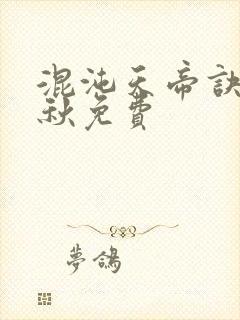 混沌天帝訣
秋免費
夢鴿